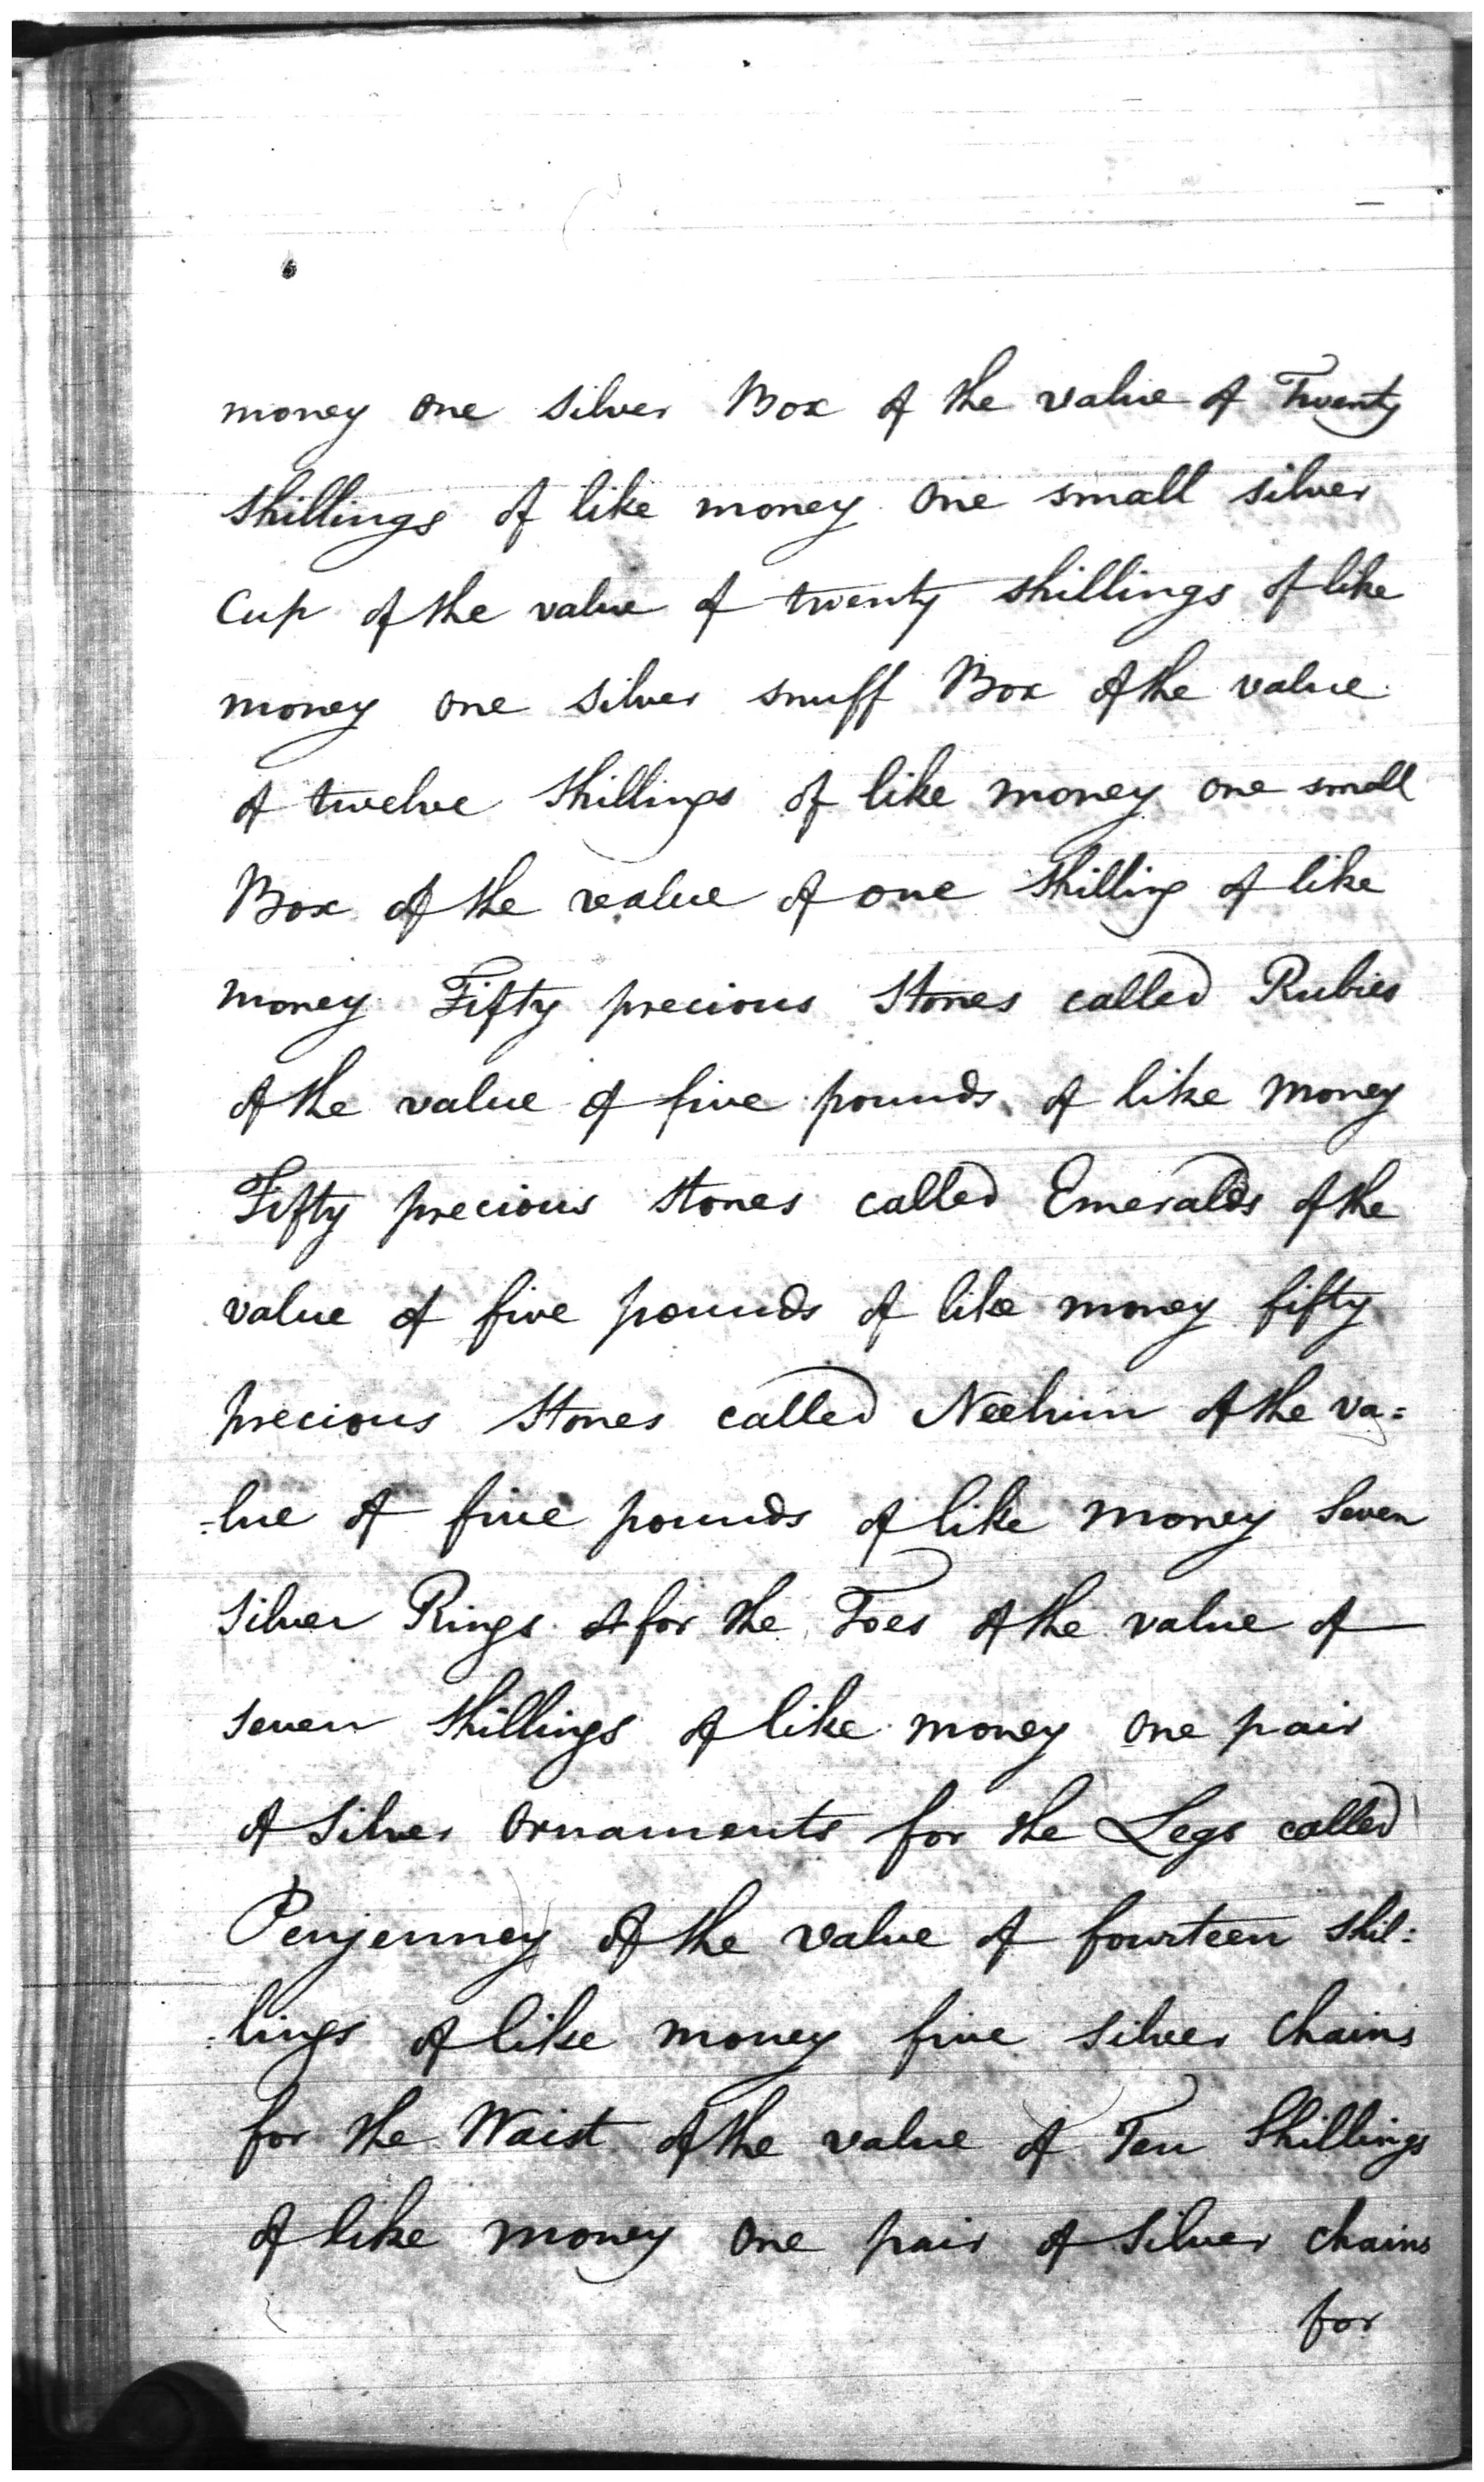 money one silver Box of the value of Twenty
shillings of like money one small silver
Cup of the value of twenty shillings of like
money one silver snuff Box of the value
of twelve Shillings of like money one small
Box of the value of one Shilling of like
money Fifty precious Stones called Rubies
of the value of five pounds of like money
Fifty precious stones called Emeralds of the
value of five pounds of like money fifty
precious Stones called Neelum of the va=
=lue of five pounds of like money Seven
silver Rings for the Toes of the value of
seven shillings of like money one pair
of Silver Ornaments for the Legs called
Penjenney of the value of fourteen shil=
=lings of like money five silver Chains
for the Waist of the value of Ten Shillings
of like money one pair of Silver chains
for